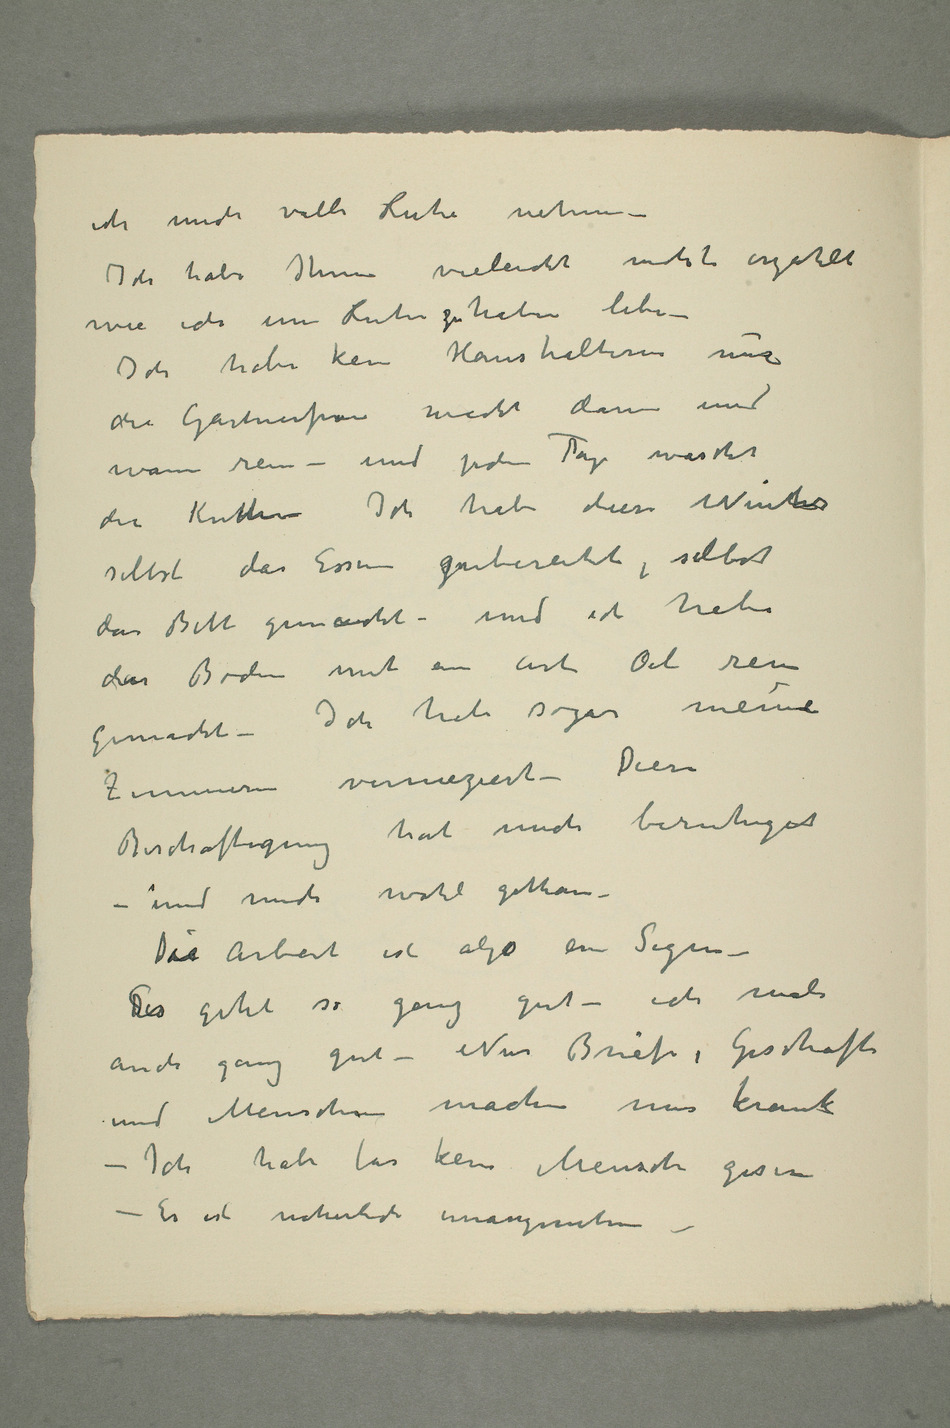 ich mich volle Ruhe nehmen –
Ich habe Ihnen vieleicht nichts erzählt
wie ich um Ruhe zu haben lebe –
Ich habe kein Haushälterin nur
die Gärtnerfrau macht dann und
wann rein – und jeden Tag wascht
die Ich habe diesen Winter
selbst das Essen zubereitet, selbst
das Bett gemacht – und ich habe
das Boden mit ein art Oel rein
gemacht – Ich habe sogar meine
Zimmern – Diese
Beschäftigung hat mich beruhiget
– und mich wohl gethan –
Die Arbeit ist also ein Segen –
Es geht so ganz gut – ich male
auch ganz gut – Nur Briefe, Geschäfte
und Menschen machen mir krank
– Ich habe fas kein Mensch gesen
– Es ist unangenehm –